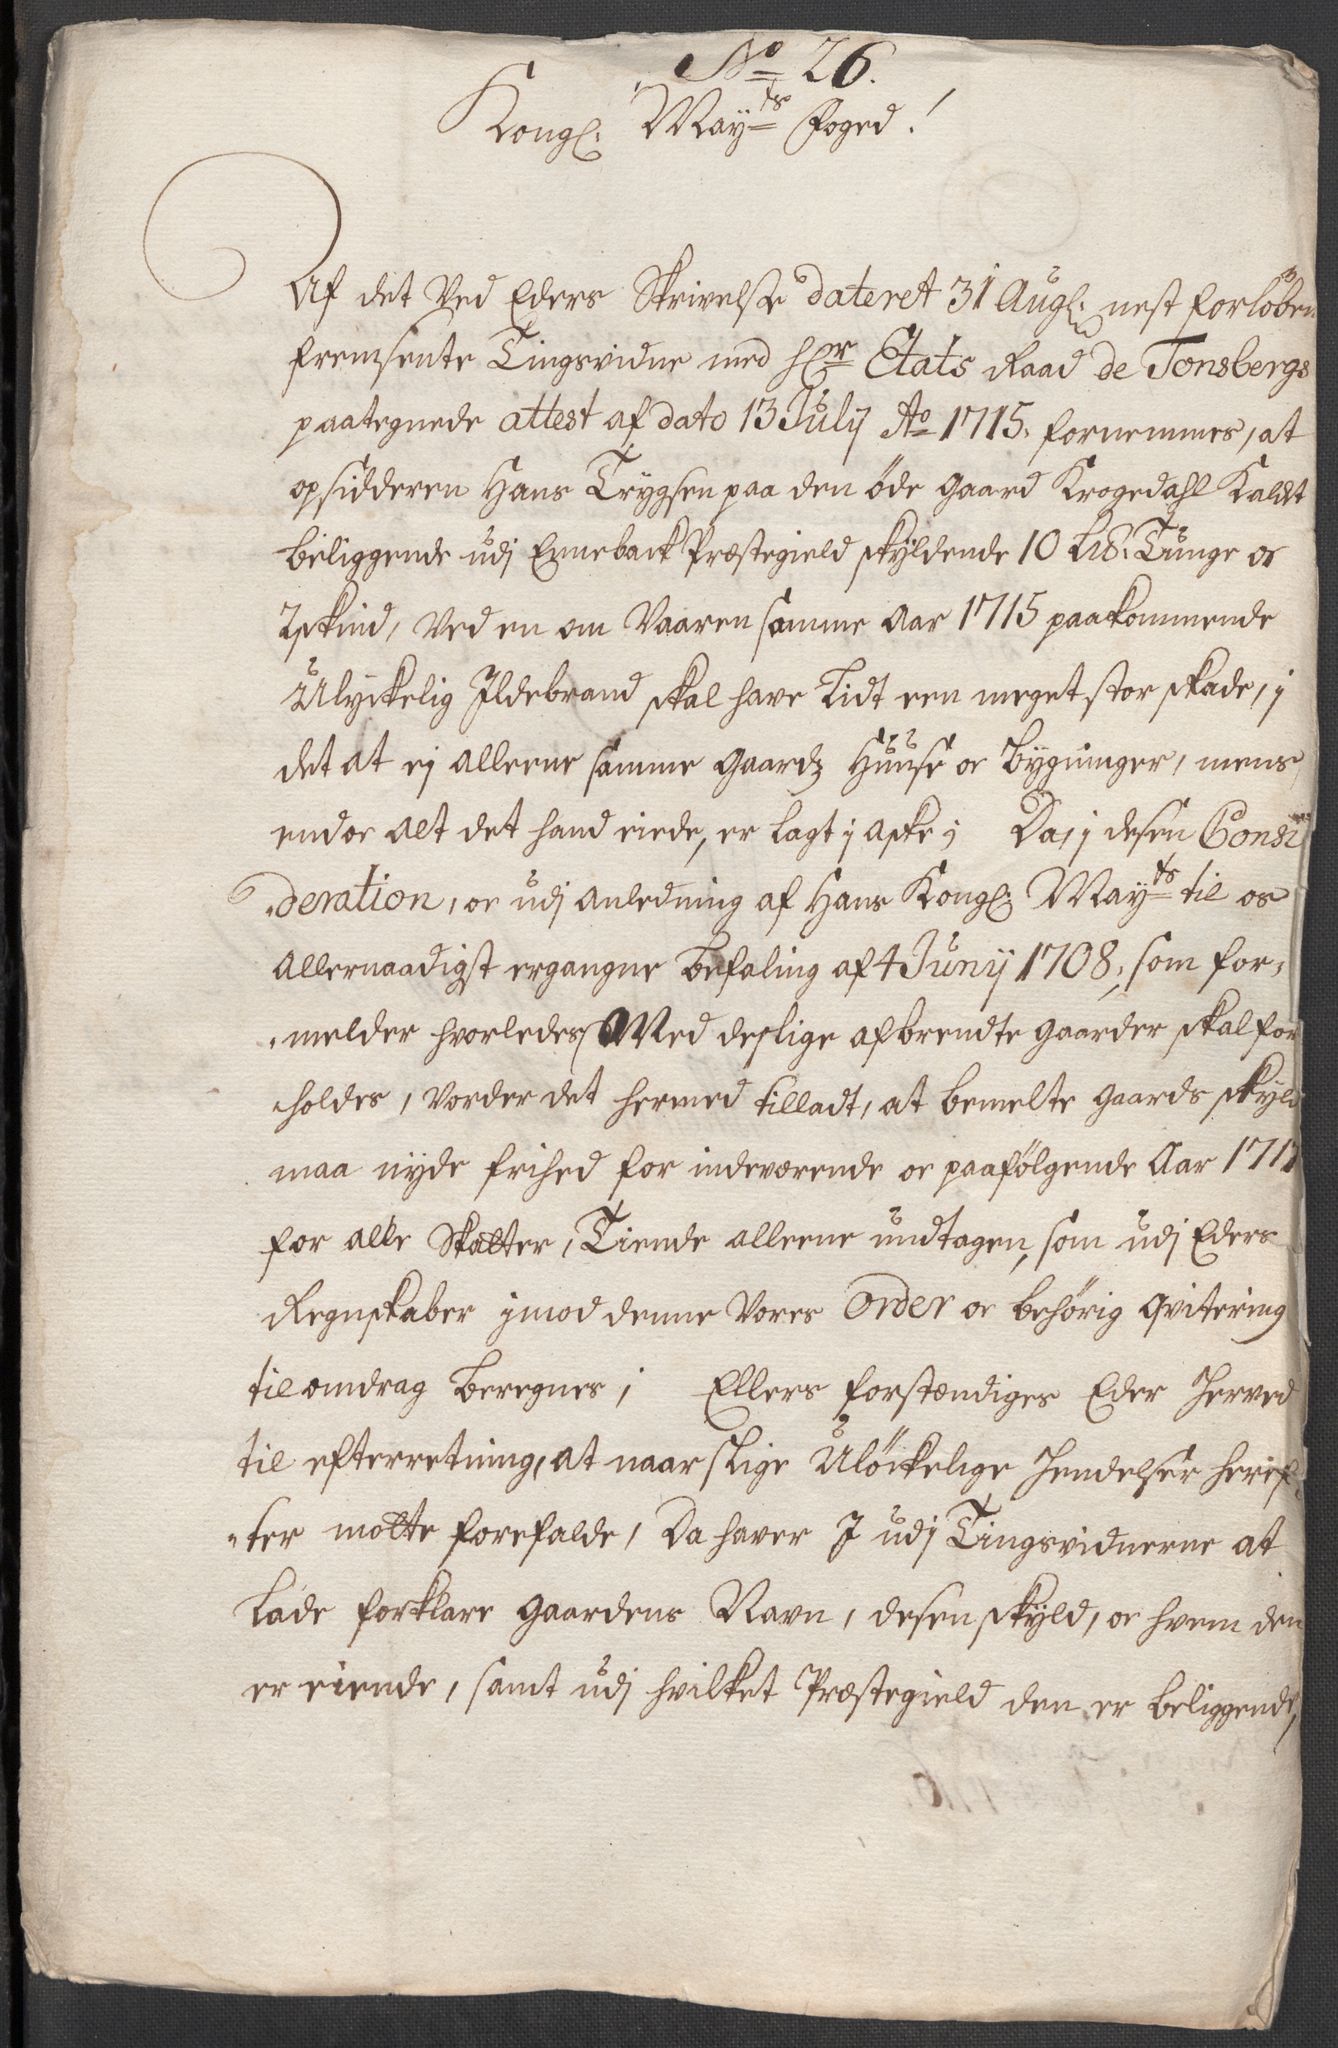 No 26.
Kongl: Mayts Foged!
Af det Ved Eders Skrivelse dateret 31 Augl: nest forløben
fremsente Tingsvidne med Hr Etats Raad de Tonsbergs
paategnede attest af dato 13 July Ao 1715. fornemmes, at
opsidderen Hans Trygsen paa den øde gaard Krogedahl Kaldt
beliggende udj Enneback Præstegield skyldende 10 Lis: Tunge oc
2 skind, Ved en om Vaaren samme Aar 1715 paakommende
Ulyckelig Ildebrand skal have Lidt een meget stor skade, j
det at ej alleene samme gaards Huuse oc bygninger, mens
endoc alt det hand eiede, er lagt j aske; Da, j desen Consi
deration, oc udj anledning af Hans Kongl: Mayts til os
allernaadigst ergangne befaling af 4 Junij 1708, som for,
melder hvorledes Med deslige afbrendte gaarder skal for
holdes, Vorder det hermed tilladt, at bemelte gaards skyld
maa nyde frihed for indeværende oc paafølgende Aar 1717
for alle Skatter, Tiende alleene undtagen, som udj Eders
Regnskaber jmod denne Vores Order oc behørig qvitering
til omdrag beregnes; Ellers forstændiges Eder herved
til efterretning, at naar slige Uløckelige hendelser heref
ter motte forefalde, Da haver I udj Tingsvidnerne at
Lade forklare gaardens Navn, desen skyld, oc hvem den
er eiende, samt udj hvilket Præstegield den er beliggende,